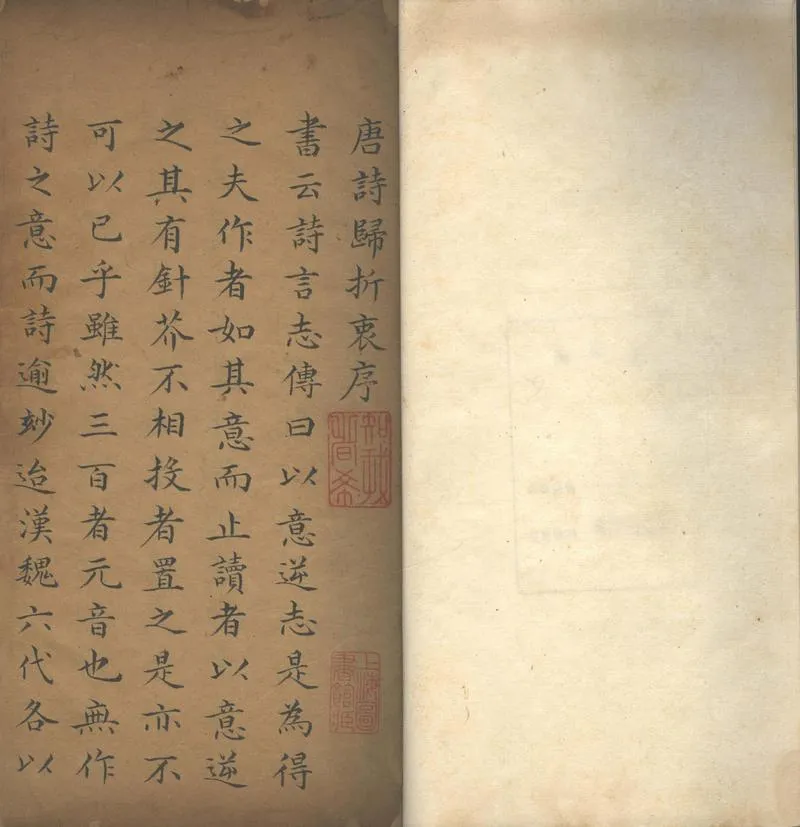 唐詩歸折衷序
書云詩言志傳曰以意逆志是為得
之夫作者如其意而止讀者以意逆
之其有針芥不相投者置之是亦不
可以已乎雖然三百者元音也無作
詩之意而詩逾玅迨漢魏六代各以
知我者希
上海圖
書館藏